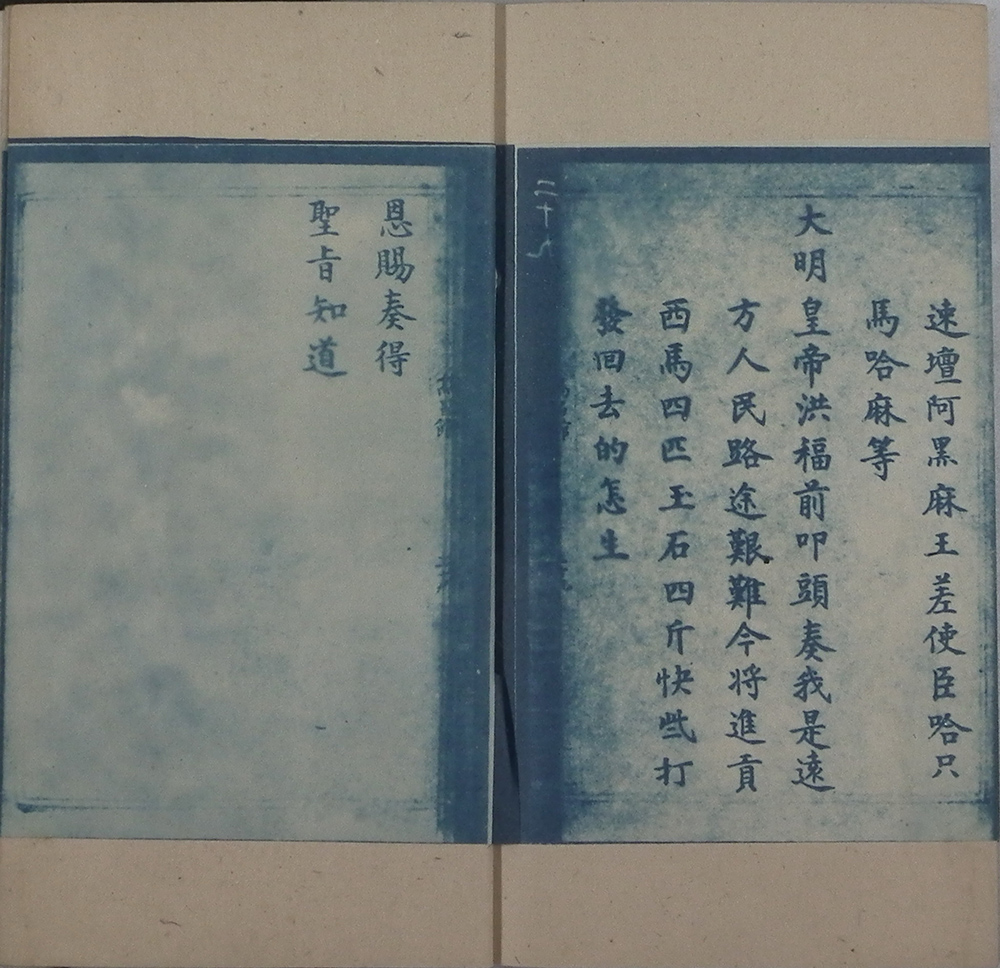 速壇阿黑麻王差使臣哈只
馬哈麻等
大明皇帝洪福前叩頭奏我是遠
方人民路途艱難今将進貢
西馬四匹玉石四斤快些打
發回去的怎生
二十九
恩賜奏得
聖旨知道